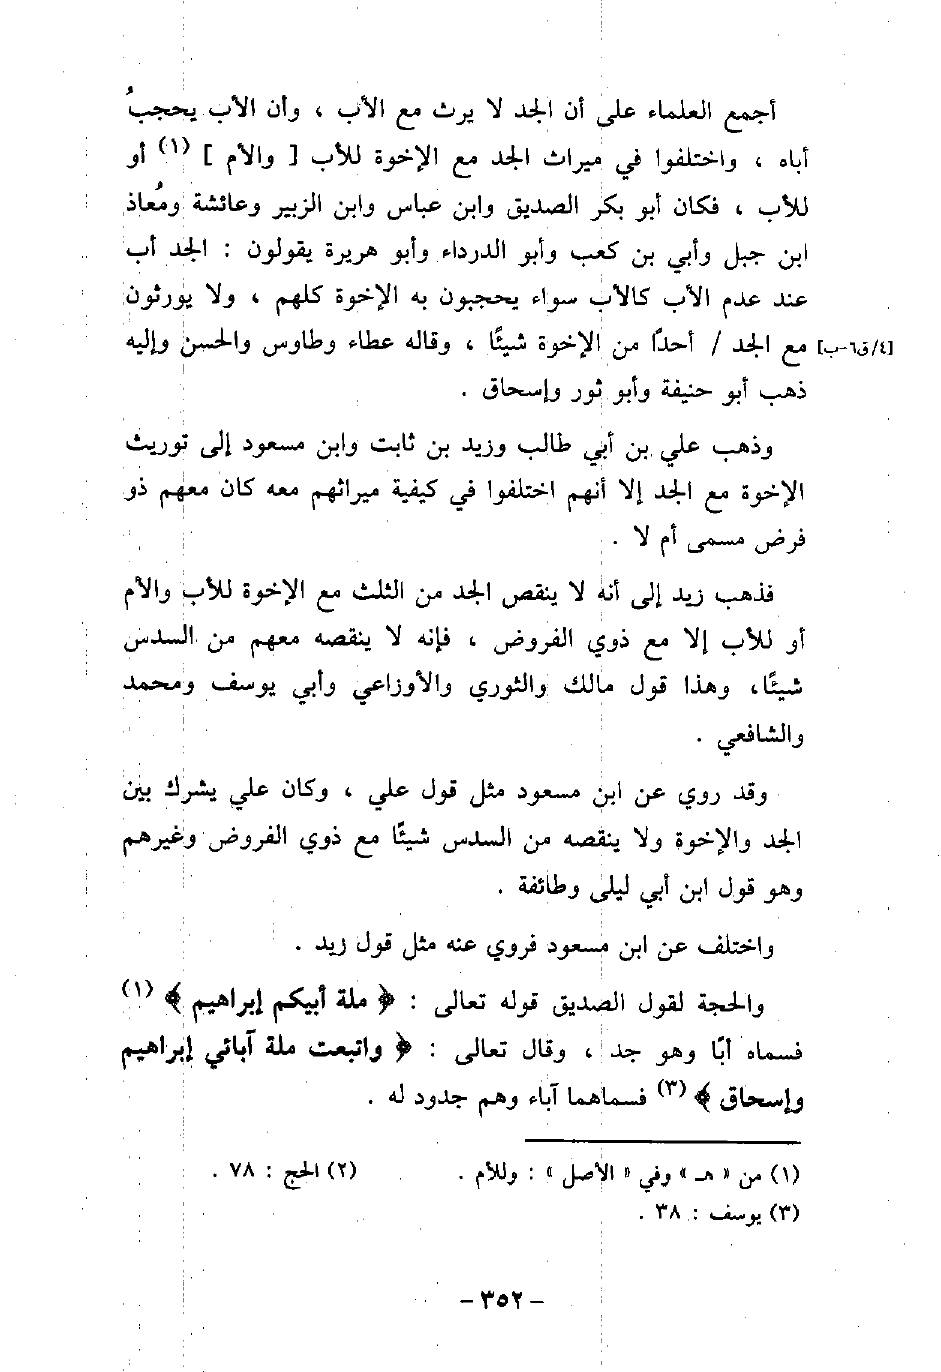 أجمع العلماء على أن الجد لا يرث مع الأب ، وأن الأب يحجبُ
أباه ، واختلفوا في ميراث الجد مع الإخوة للأب [ والأم ] (١) أو
للأب ، فكان أبو بكر الصديق وابن عباس وابن الزبير وعائشة ومُعاذ
ابن جبل وأبي بن كعب وأبو الدرداء وأبو هريرة يقولون : الجد أب
عند عدم الأب كالأب سواء يحجبون به الإخوة كلهم ، ولا يورثون
[٤/ق٦-ب] مع الجد / أحدًا من الإخوة شيئًا ، وقاله عطاء وطاوس والحسن وإليه
ذهب أبو حنيفة وأبو ثور وإسحاق .
وذهب علي بن أبي طالب وزيد بن ثابت وابن مسعود إلى توريث
الإخوة مع الجد إلا أنهم اختلفوا في كيفية ميراثهم معه كان معهم ذو
فرض مسمى أم لا .
فذهب زيد إلى أنه لا ينقص الجد من الثلث مع الإخوة للأب والأم
أو للأب إلا مع ذوي الفروض ، فإنه لا ينقصه معهم من السدس
شيئًا، وهذا قول مالك والثوري والأوزاعي وأبي يوسف ومحمد
والشافعي .
وقد روي عن ابن مسعود مثل قول علي ، وكان علي يشرك بين
الجد والإخوة ولا ينقصه من السدس شيئًا مع ذوي الفروض وغيرهم
وهو قول ابن أبي ليلى وطائفة .
واختلف عن ابن مسعود فروي عنه مثل قول زيد .
والحجة لقول الصديق قوله تعالى : ﴿ ملة أبيكم إبراهيم ﴾ (١)
فسماه أبًا وهو جد ، وقال تعالى : ﴿ واتبعت ملة آبائي إبراهيم
وإسحاق ﴾ (٣) فسماهما آباء وهم جدود له .
(١) من « هـ » وفي « الأصل » : وللأم . (٢) الحج : ٧٨ .
(٣) يوسف : ٣٨ .
- ٣٥٢ -